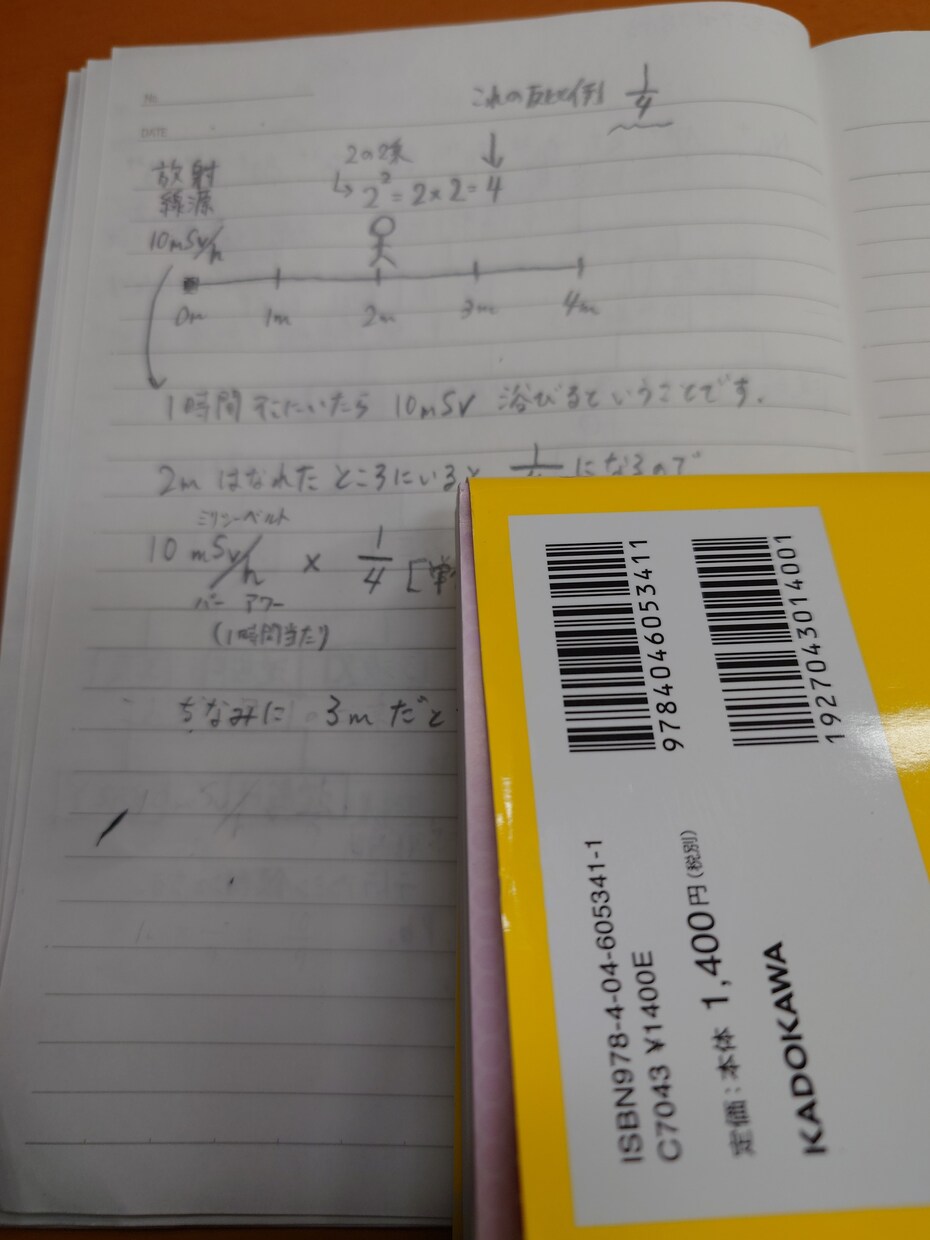 No.
DATE
これの反比例 1/4
2の2乗
↓
放射
線源
↳ 2² = 2×2 = 4
10mSv/h
0m 1m 2m 3m 4m
1時間そこにいたら 10mSv 浴びるということです。
2m はなれたところにいると になるので
ミリシーベルト
10 mSv/h × 1/4 [単
パー アワー
(1時間当たり)
ちなみに 3mだと
9784046053411
1927043014001
ISBN978-4-04-605341-1
C7043 ¥1400E
定価:本体 1,400円(税別)
KADOKAWA